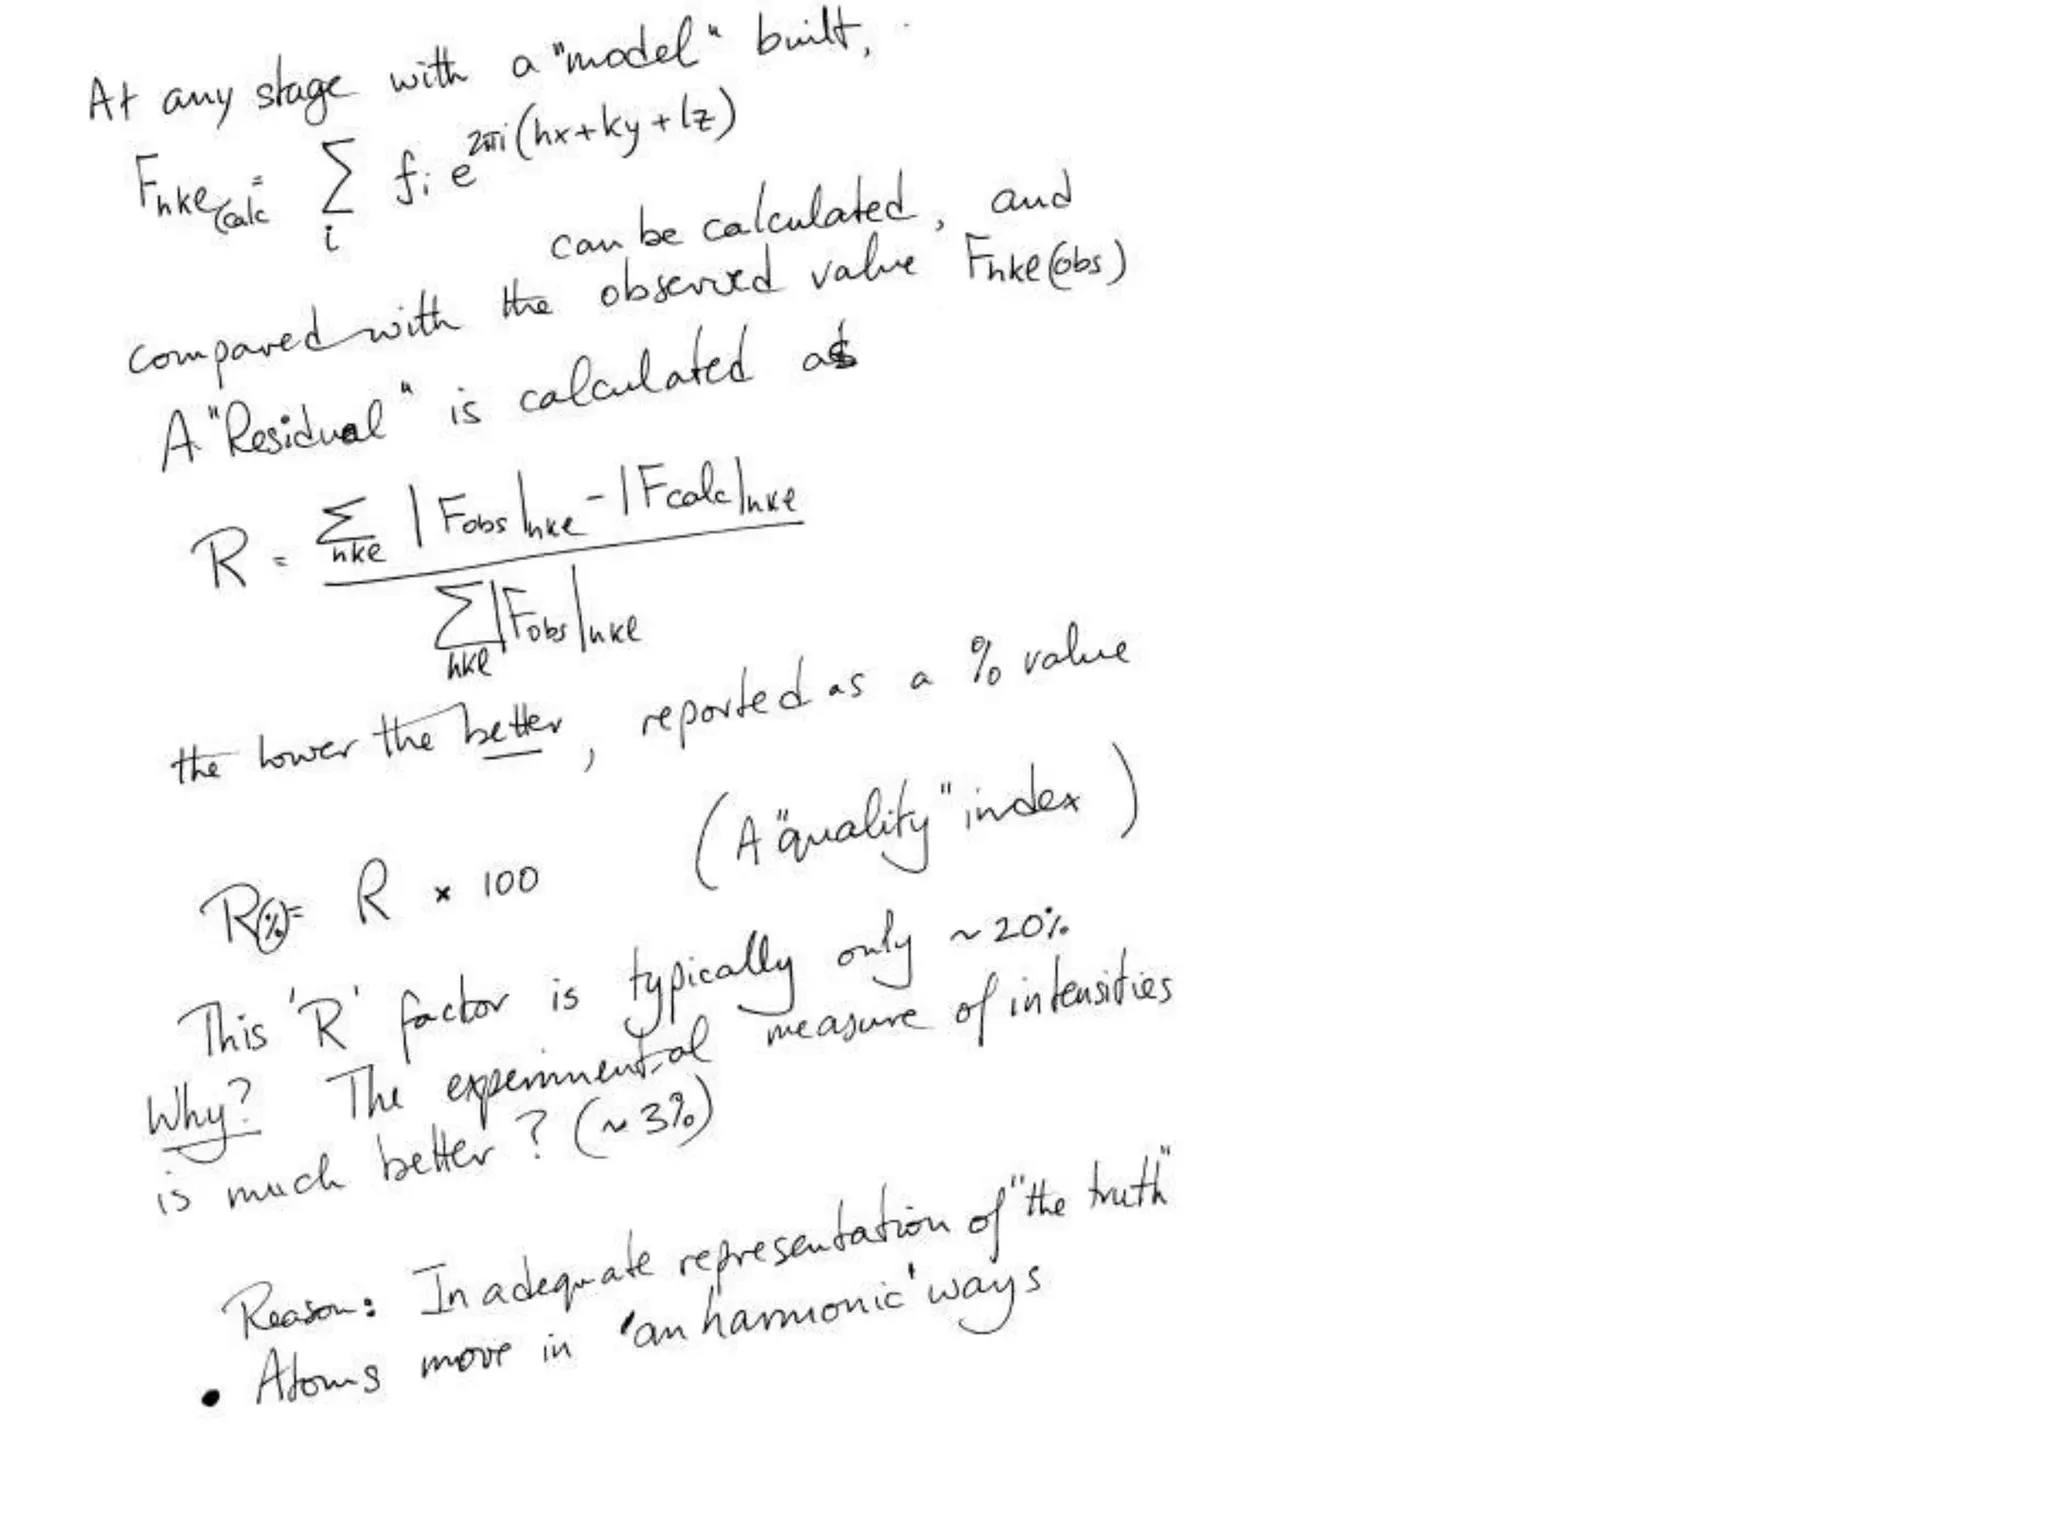 At any stage with a "model" built,
F_hkl calc = Σ_i f_i e^2πi(hx+ky+lz)
can be calculated, and
compared with the observed value F_hkl(obs)
A "Residual" is calculated as
R = Σ_hkl |F_obs|_hkl - |F_calc|_hkl
Σ_hkl |F_obs|_hkl
the lower the better, reported as a % value
(A "quality" index)
R(%) = R × 100
This 'R' factor is typically only ~20%
Why? The experimental measure of intensities
is much better? (~3%)
Reason: Inadequate representation of "the truth"
• Atoms move in 'anharmonic' ways